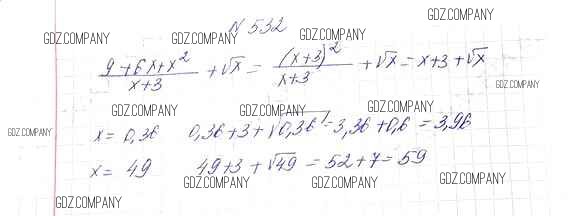 N 532
GDZ.COMPANY GDZ.COMPANY GDZ.COMPANY GDZ.COMPANY
(9+6x+x²)/(x+3) + √x = (x+3)²/(x+3) + √x = x+3+√x
GDZ.COMPANY GDZ.COMPANY
x = 0,36 0,36+3+√0,36 = 3,36+0,6 = 3,96
GDZ.COMPANY GDZ.COMPANY
x = 49 49+3+√49 = 52+7 = 59
GDZ.COMPANY GDZ.COMPANY GDZ.COMPANY
GDZ.COMPANY